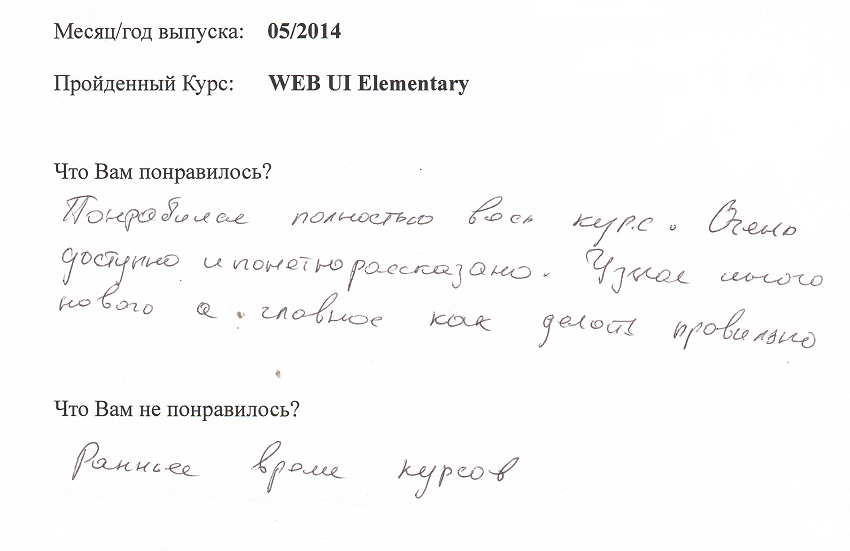 Месяц/год выпуска: 05/2014
Пройденный Курс: WEB UI Elementary
Что Вам понравилось?
Понравился полностью весь курс. Очень
доступно и понятно рассказано. Узнал много
нового а главное как делать правильно
Что Вам не понравилось?
Раннее время курсов